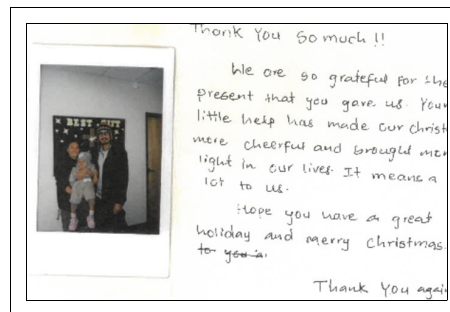 Thank You so much !!
We are so grateful for the
present that you gave us. Your
little help has made our christ
more cheerful and brought mor
light in our lives. It means a
lot to us.
Hope you have a great
holiday and merry christmas.
to you a
Thank You again
BEST